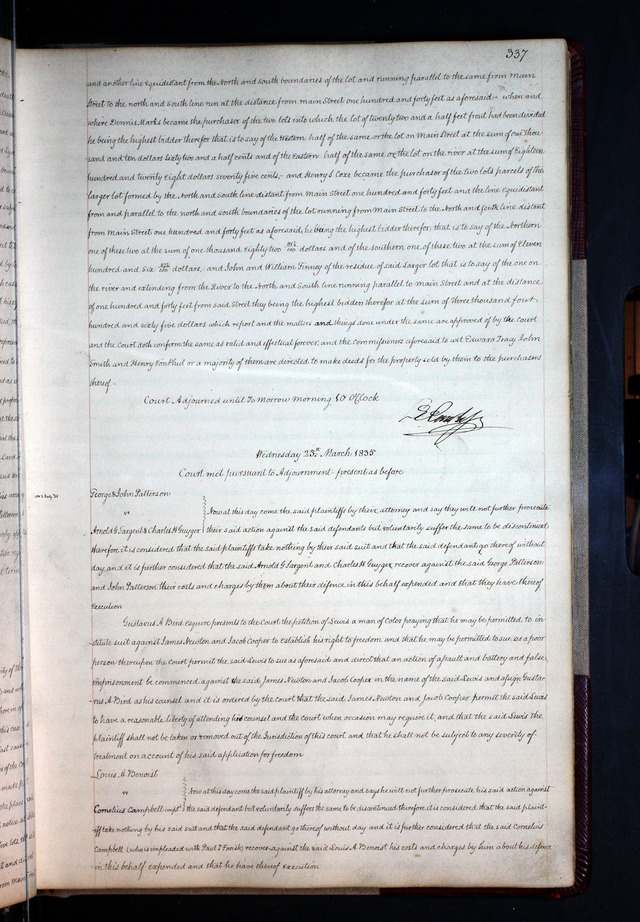 337
and another line Equidistant from the North and south boundaries of the lot and running parallel to the same from Main
Street to the north and south line run at the distance from main Street one hundred and forty feet as aforesaid - when and
where Dennis Marks became the purchaser of the two lots into which the lot of twenty two and a half feet front had been divided
he being the highest bidder therefor that is to say of the Western half of the same or the lot on Main Street at the sum of one thou-
sand and ten dollars sixty two and a half cents and of the Eastern half of the same or the lot on the river at the sum of Eighteen
hundred and twenty Eight dollars seventy five cents, - and Henry S Coxe became the purchaser of the two lots parcels of the
larger lot formed by the North and south line distant from Main Street one hundred and forty feet and the line Equidistant
from and parallel to the north and south boundaries of the lot running from Main Street to the North and south line distant
from Main Street one hundred and forty feet as aforesaid, he being the highest bidder therefor, that is to say of the Northern
one of these two at the sum of one thousand Eighty two dollars and of the southern one of these two at the sum of Eleven
hundred and six dollars, and John and William Finney of the residue of said Larger lot that is to say of the one on
the river and extending from the River to the North and South line running parallel to main Street and at the distance
of one hundred and forty feet from said Street they being the highest bidders therefor at the sum of three thousand four
hundred and sixty five dollars which report and the matters and things done under the same are approved of by the court
and the Court doth confirm the same as valid and effectual forever, and the commissioners aforesaid to wit Edward Tracy John
Smith and Henry Von Phul or a majority of them are directed to make deeds for the property sold by them to the purchasers
thereof -
Court Adjourned until To morrow morning 10 O'Clock
Wednesday 25th March 1835
Court met pursuant to Adjournment - present as before
George & John Patterson
vs
Now at this day come the said plaintiffs by their attorney and say they will not further prosecute
Arnold G Sargent & Charles H Guyger their said action against the said defendants but voluntarily suffer the same to be discontinued
therefore it is considered that the said plaintiffs take nothing by their said suit and that the said defendants go thereof without
day, and it is further considered that the said Arnold G Sargent and Charles H Guyger recover against the said George Patterson
and John Patterson their costs and charges by them about their defence in this behalf expended and that they have thereof
execution
Gustavus A Bird esquire presents to the Court the petition of Lewis a man of color praying that he may be permitted to in-
stitute suit against James Newton and Jacob Cooper to establish his right to freedom and that he may be permitted to sue as a poor
person thereupon the court permit the said Lewis to sue as aforesaid and direct that an action of assault and battery and false
imprisonment be commenced against the said James Newton and Jacob Cooper in the name of the said Lewis and assign Gusta-
vus A Bird as his counsel and it is ordered by the court that the said James Newton and Jacob Cooper permit the said Lewis
to have a reasonable liberty of attending his counsel and the court when occasion may require it, and that the said Lewis the
plaintiff shall not be taken or removed out of the Jurisdiction of this court and that he shall not be subject to any severity of
treatment on account of his said application for freedom
Louis A Benoist
vs
Now at this day come the said plaintiff by his attorney and says he will not further prosecute his said action against
Cornelius Campbell impd the said defendant but voluntarily suffers the same to be discontinued therefore it is considered that the said plaint-
iff take nothing by his said suit and that the said defendant go thereof without day and it is further considered that the said Cornelius
Campbell (who is impleaded with Paul T Farish) recover against the said Louis A Benoist his costs and charges by him about his defence
in this behalf expended and that he have thereof execution